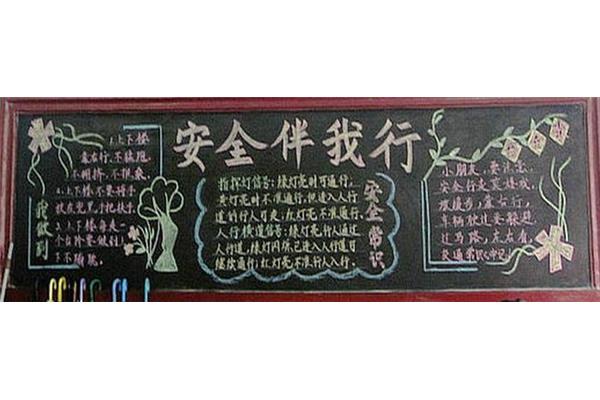 安全伴我行
我做到
1.上下楼
靠右行，不猛跑，
不拥挤，不
2.上下楼不要将手
放在兜里，手把扶手，
3.上下楼每走一
个台阶要做到上
下不
安全常识
指挥灯信号：绿灯亮时可通行，
黄灯亮时不准通行，但进入人行
道的行人可走，红灯亮不准通行。
人行横道信号：绿灯亮行人通过
人行道，绿灯闪烁，已进入人行道可
继续通行；红灯亮不准行人入行。
小朋友，要注意，
安全行走莫嬉戏，
慢步，靠右行，
车辆驶过要躲避，
过马路，左右看，
交通常识心中记。